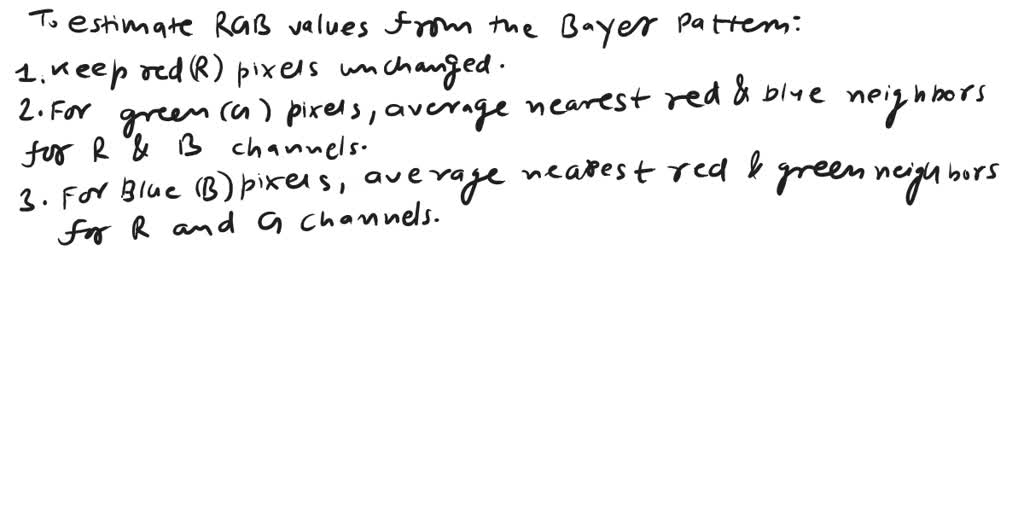 To estimate RGB values from the Bayer Pattern:
1. Keep red (R) pixels unchanged.
2. For green (G) pixels, average nearest red & blue neighbors
for R & B channels.
3. For Blue (B) pixels, average nearest red & green neighbors
for R and G channels.